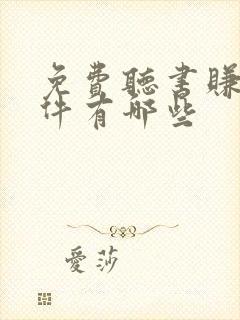 免費聽書賺
件有哪些
愛莎